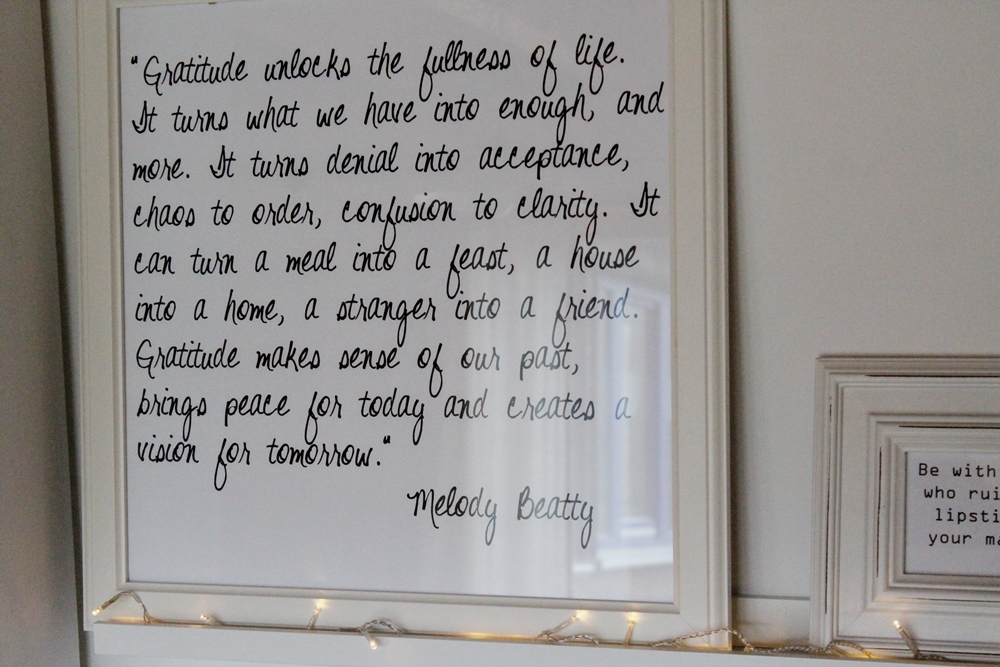 "Gratitude unlocks the fullness of life.
It turns what we have into enough, and
more. It turns denial into acceptance,
chaos to order, confusion to clarity. It
can turn a meal into a feast, a house
into a home, a stranger into a friend.
Gratitude makes sense of our past,
brings peace for today and creates a
vision for tomorrow."
Melody Beatty
Be with
who
your